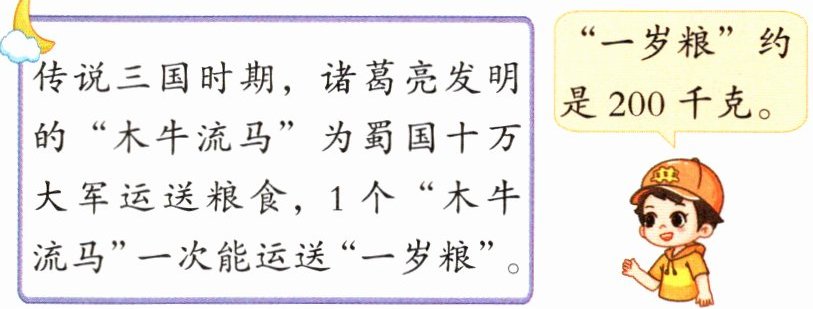 传说三国时期，诸葛亮发明
的“木牛流马”为蜀国十万
大军运送粮食，1个“木牛
流马”一次能运送“一岁粮”。
“一岁粮”约
是 200 千克。